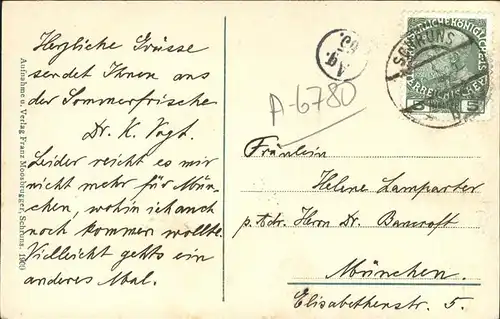 Herzliche Grüsse
sendet Ihnen aus
der Sommerfrische
Dr. K. Vogt.
Leider reicht es mir
nicht mehr für Mün-
chen, wohin ich auch
noch kommen wollte.
Vielleicht gehts ein
anderes Mal.
Aufnahme u. Verlag Franz Moosbrugger, Schruns. 1909
Ag.
A-6780
SCHRUNS
5 5
Fräulein
Helene Lamparter
p. Adr. Herrn Dr. Bancroft
München.
Elisabethenstr. 5.